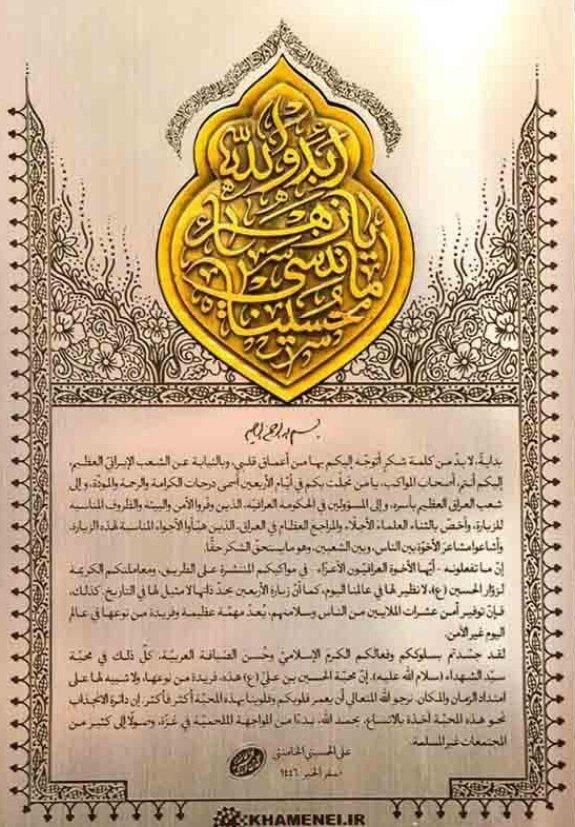 أبد والله
يا زهراء
ما ننسى
حسيناه
بسم الله الرحمن الرحيم
بدايةً، لا بدّ من كلمة شكر أتوجّه إليكم بها من أعماق قلبي، وبالنيابة عن الشعب الإيراني العظيم،
إليكم أنتم أصحاب المواكب، يا من تجلّت بكم في أيّام الأربعين أسمى درجات الكرامة والرحمة والمودّة، و إلى
شعب العراق العظيم بأسره، و إلى المسؤولين في الحكومة العراقيّة، الذين وفّروا الأمن والبيئة والظروف المناسبة
للزيارة، وأخصّ بالثناء العلماء الأجلّاء والمراجع العظام في العراق، الذين هيّأوا الأجواء المناسبة لهذه الزيارة،
وأشاعوا مشاعر الأخوّة بين الناس، وبين الشعبين، وهو ما يستحقّ الشكر حقًّا.
إنّ ما تفعلونه - أيّها الأخوة العراقيّون الأعزّاء - في مواكبكم المنتشرة على الطريق، ومعاملتكم الكريمة
لزوّار الحسين (ع)، لا نظير لها في عالمنا اليوم، كما أنّ زيارة الأربعين بحدّ ذاتها لا مثيل لها في التاريخ. كذلك،
فإنّ توفير أمن عشرات الملايين من الناس وسلامتهم، يُعدّ مهمّة عظيمة وفريدة من نوعها في عالم
اليوم غير الآمن.
لقد جسّدتم بسلوككم وفعالكم الكرمَ الإسلاميَّ وحُسن الضيافة العربيّة، كلّ ذلك في محبّة
سيّد الشهداء (سلام الله عليه). إنّ محبّة الحسين بن عليّ (ع) هذه، فريدة من نوعها، ولا شبيه لها على
امتداد الزمان والمكان. نرجو الله المتعالي أن يعمر قلوبكم وقلوبنا بهذه المحبّة أكثر فأكثر. إن دائرة الانجذاب
نحو هذه المحبّة آخذة بالاتساع، بحمد الله، بدءًا من المواجهة الملحميّة في غزّة، وصولًا إلى كثير من
المجتمعات غير المسلمة.
علي الحسيني الخامنئي
صفر الخير ١٤٤٦
KHAMENEI.IR